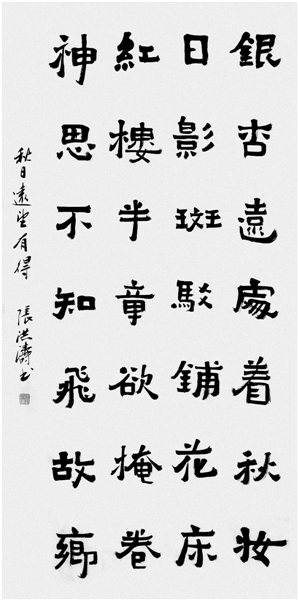 銀杏遠處着秋妝
日影斑駁鋪花床
紅樓半章欲掩卷
神思不知飛故鄉
秋日遠望有得 張洪濤書